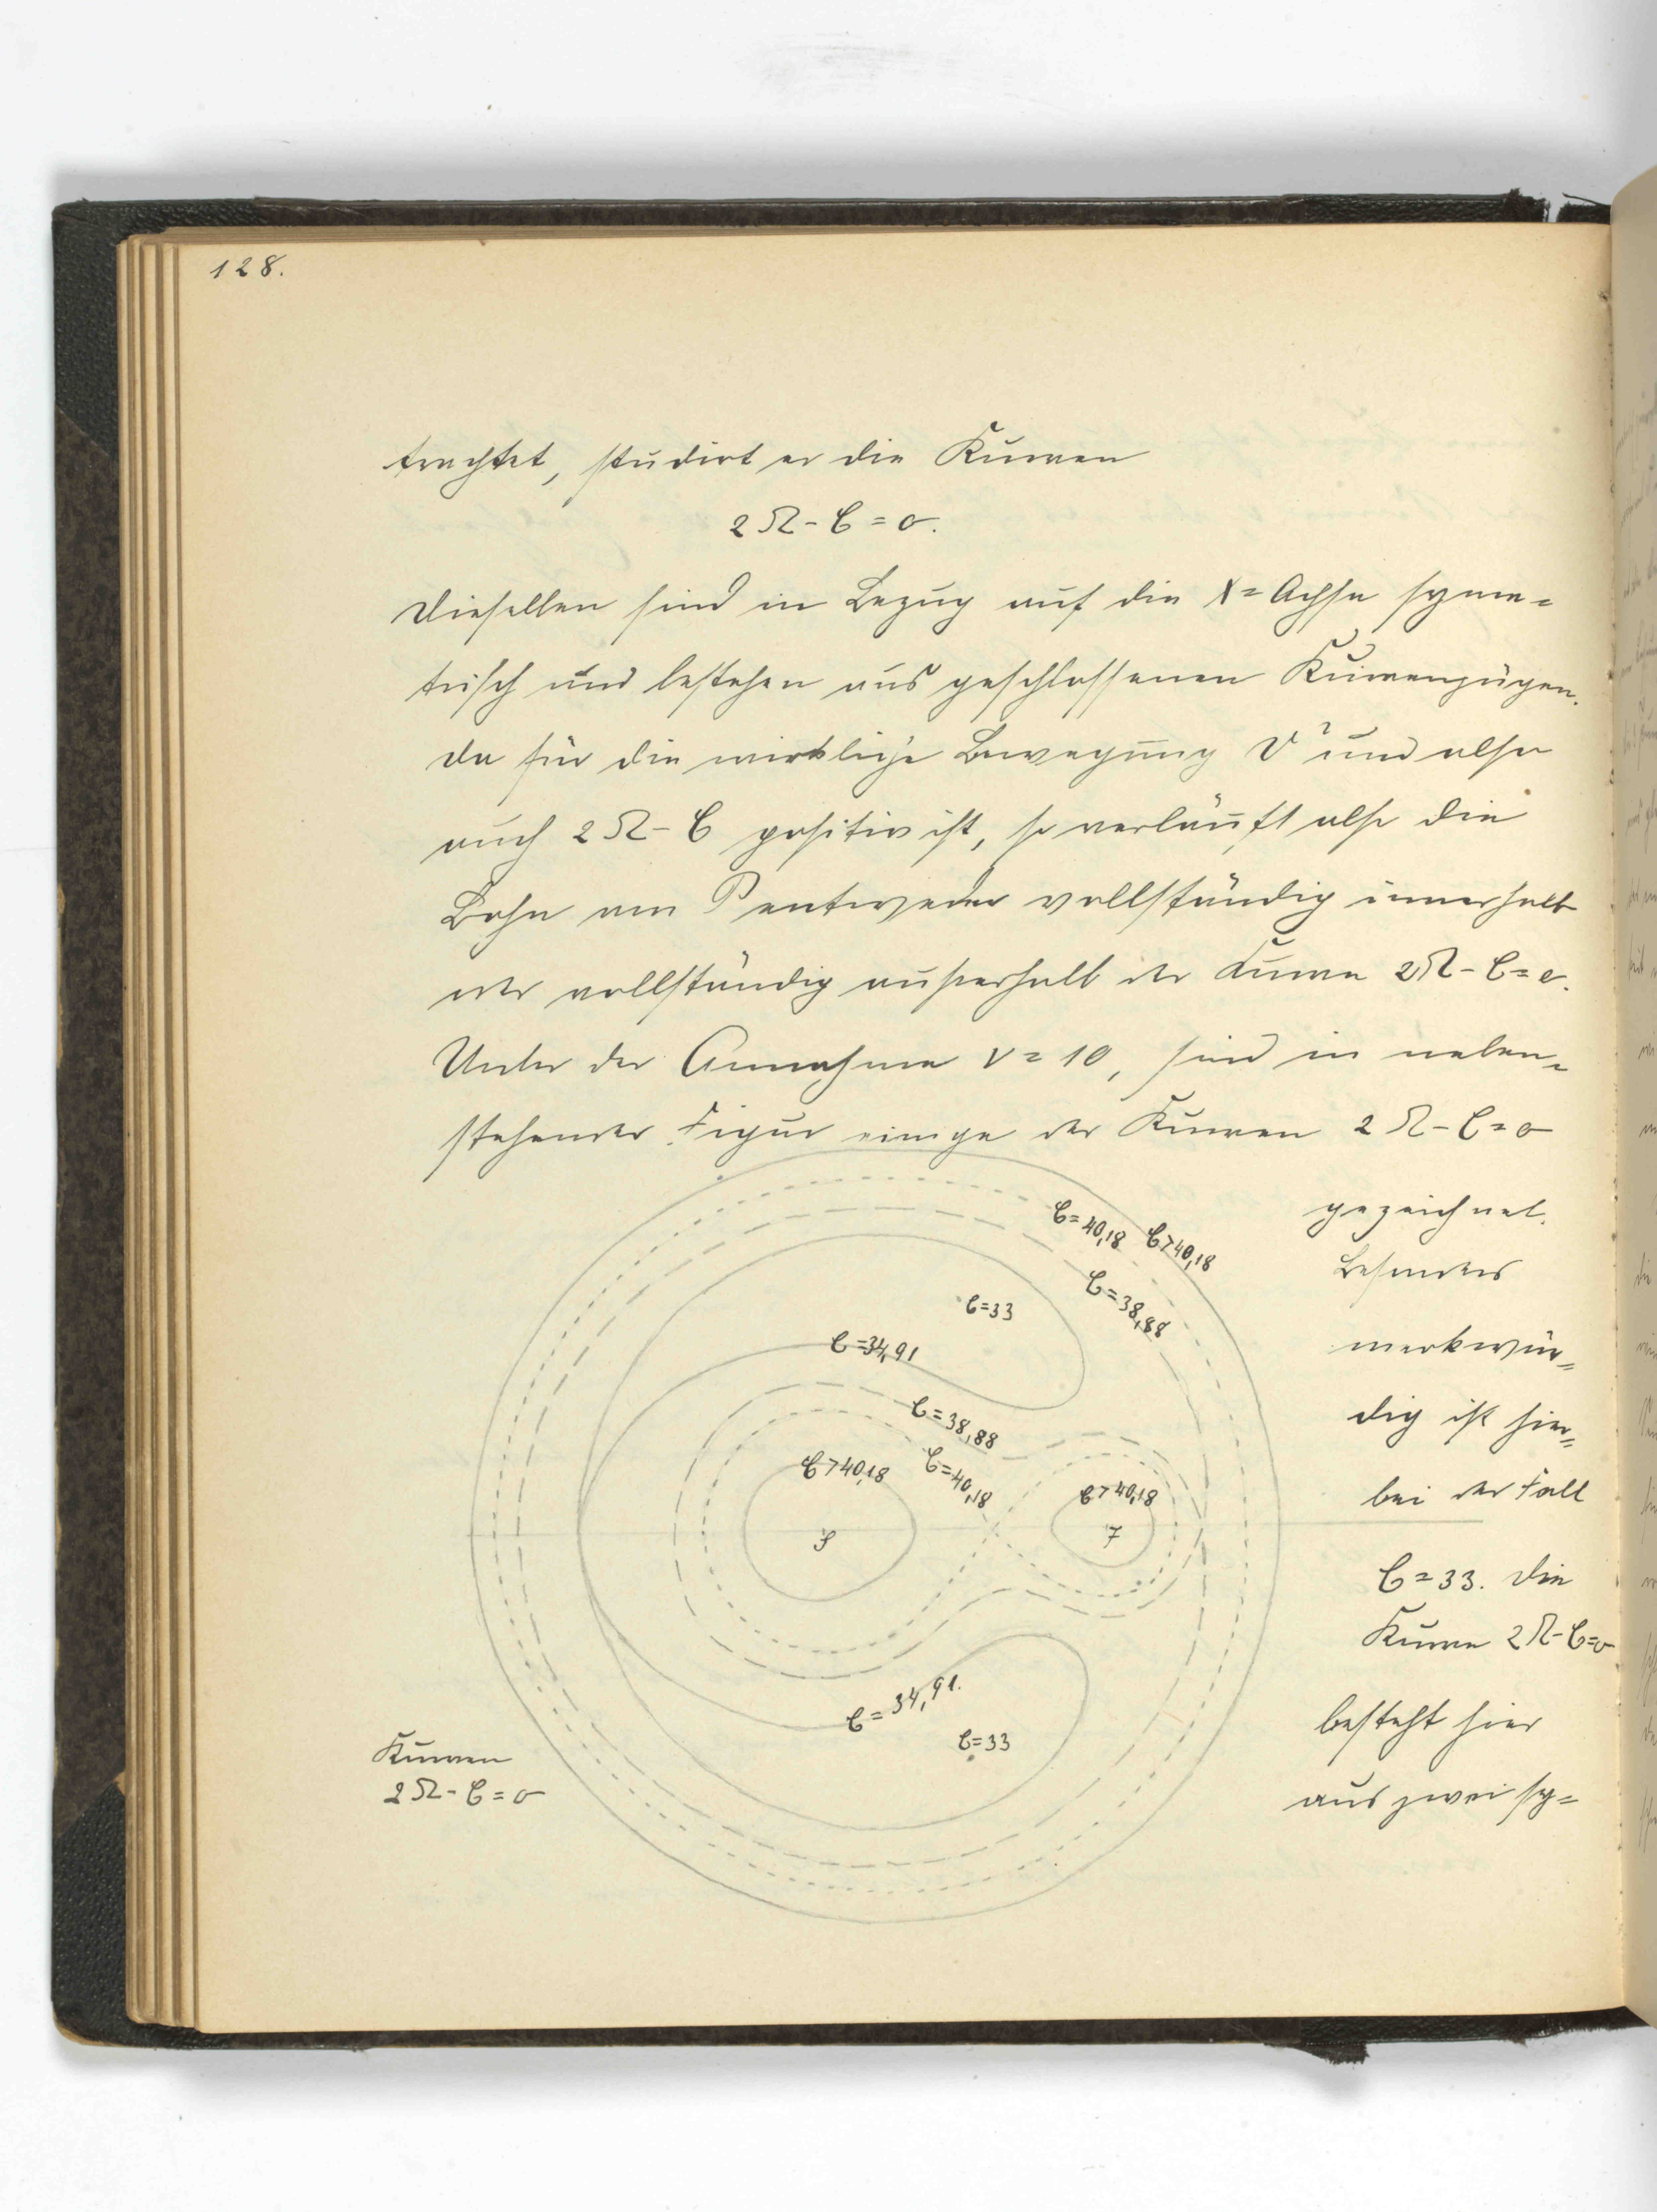 128.
trachtet, studirt er die Kurven
2Ω - C = o.
Dieselben sind in Bezug auf die X = Achse syme=
trisch und bestehen aus geschlossenen Kurvenzügen.
Da für die wirkliche Bewegung V² und also
auch 2Ω - C positiv ist, so verläuft also die
Bahn von P entweder vollständig innerhalb
oder vollständig außerhalb der Kurve 2Ω - C = o.
Unter der Annahme ν = 10, sind in neben=
stehender Figur einige der Kurven 2Ω - C = o
gezeichnet.
Besonders
merkwür=
dig ist hier=
bei der Fall
C = 33. Die
Kurve 2Ω - C = o
besteht hier
aus zwei sy=
C = 40,18
C > 40,18
C = 38,88
C = 33
C = 34,91
C = 38,88
C > 40,18
C = 40,18
C > 40,18
S
J
C = 34,91.
C = 33
Kurven
2Ω - C = o